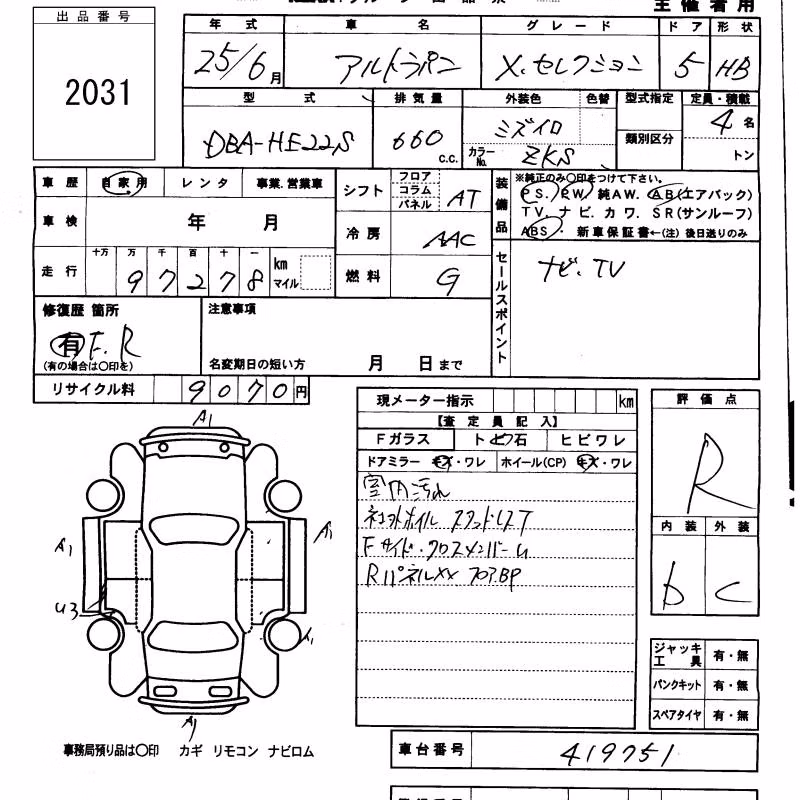 主催者用
出品番号
2031
年式 車名 グレード ドア 形状
25/6月 アルトラパン X.セレクション 5 HB
型式 排気量 外装色 色替 型式指定 定員・積載
DBA-HE22S 660 c.c. ミズイロ カラーNo. ZKS 類別区分 4名 トン
車歴 自家用 レンタ 事業.営業車
車検 年 月
走行 十万 万 千 百 十 一 km マイル
97278
シフト フロア コラム パネル AT
冷房 AAC
燃料 G
装備品 ※純正のみ〇印をつけて下さい。
PS. PW. 純AW. AB(エアバック)
TV. ナビ. カワ. SR(サンルーフ)
ABS ・ 新車保証書←(注)後日送りのみ
セールスポイント
ナビ.TV
修復歴 箇所
有 F.R
(有の場合は〇印を)
注意事項
名変期日の短い方 月 日まで
リサイクル料 9070円
現メーター指示 km
【査定員記入】
Fガラス トビ石 ヒビワレ
ドアミラー キズ・ワレ ホイール(CP) キズ・ワレ
室内汚れ
ネコットホイル スタッドレスT
Fサイド・クロスメンバーU
RパネルXX フロアBP
評価点
R
内装 外装
b C
A1
A1
A1
U3
A1
A1
ジャッキ 工具 有・無
パンクキット 有・無
スペアタイヤ 有・無
事務局預り品は〇印 カギ リモコン ナビロム
車台番号 419751